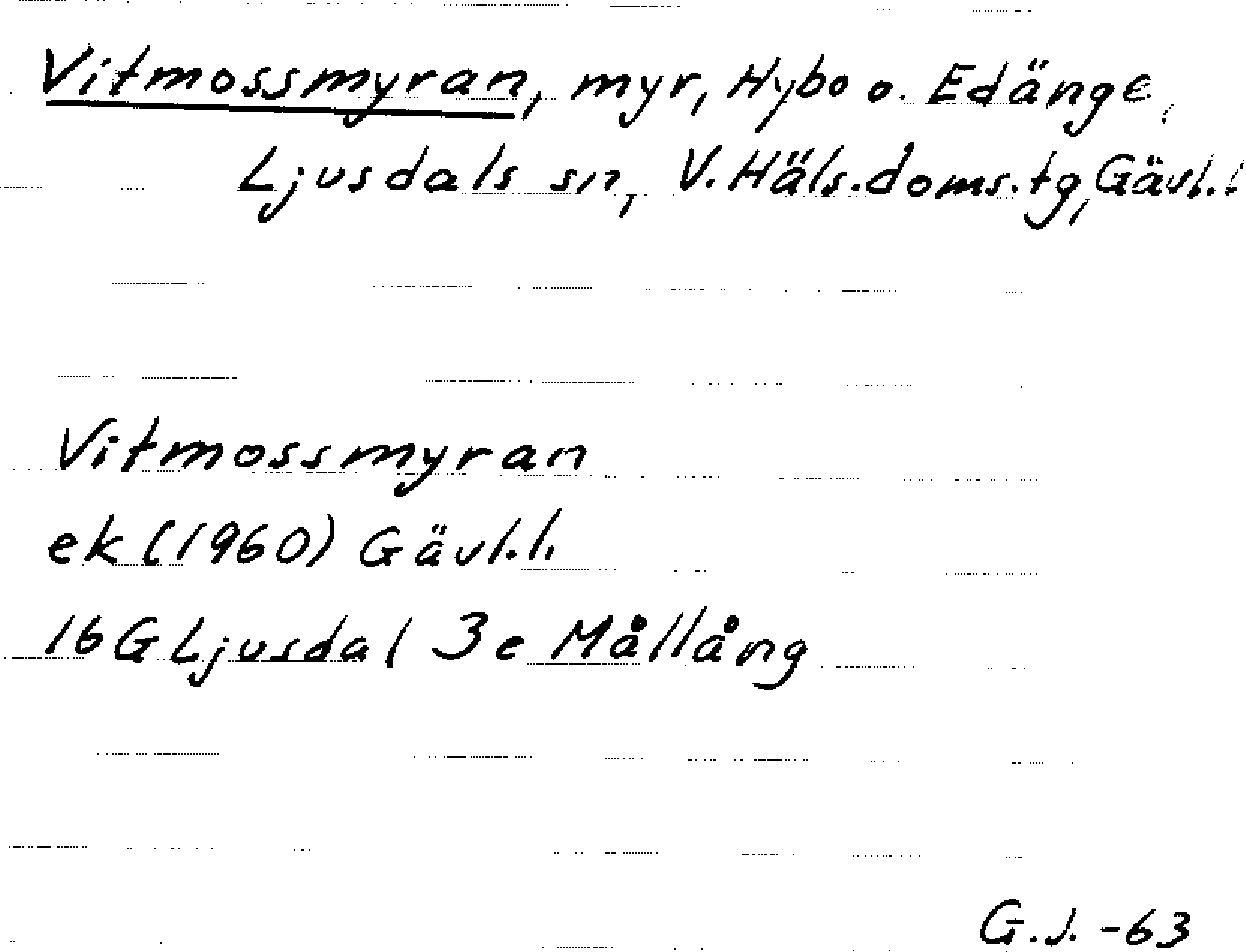 Vitmossmyran, myr, Hybo o. Edänge,
Ljusdals sn, V. Häls. doms. tg, Gävl. l
Vitmossmyran
ek (1960) Gävl. l.
16G Ljusdal 3e Mållång
G.J. -63